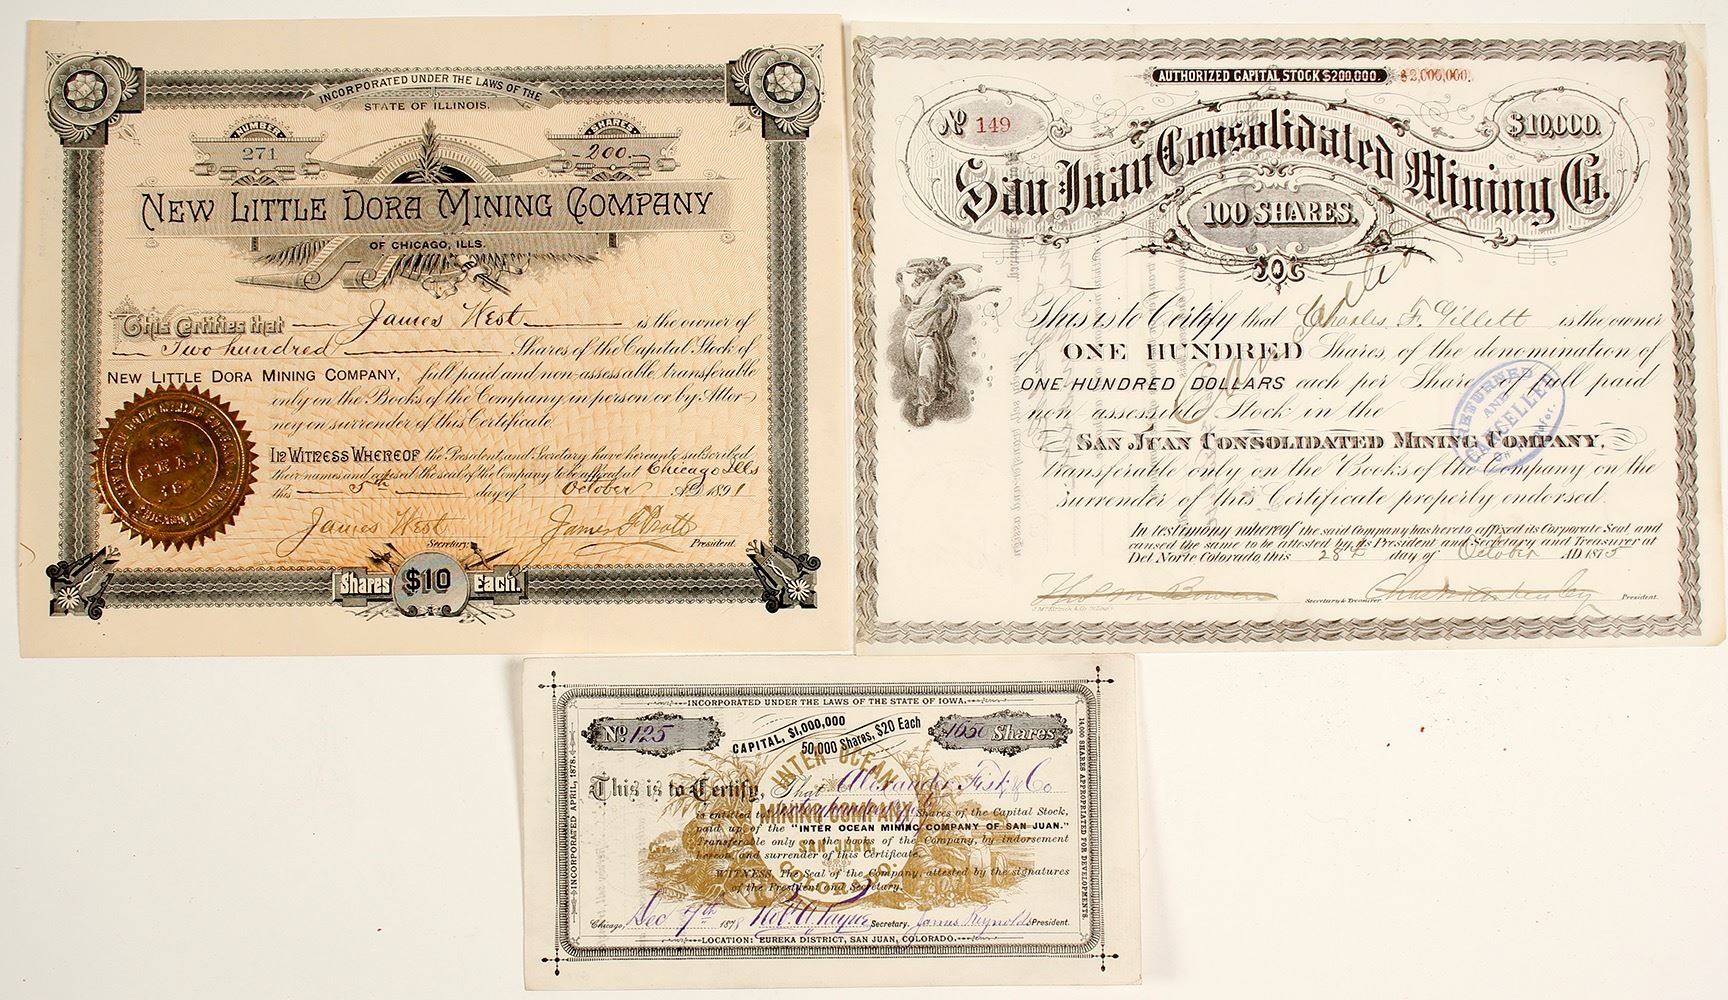 INCORPORATED UNDER THE LAWS OF THE
STATE OF ILLINOIS.
NUMBER
SHARES
271
200.
NEW LITTLE DORA MINING COMPANY
OF CHICAGO, ILLS.
This Certifies that James West is the owner of
Two hundred Shares of the Capital Stock of
NEW LITTLE DORA MINING COMPANY, full paid and non-assessable, transferable
only on the Books of the Company in person or by Attor-
ney on surrender of this Certificate.
IN WITNESS WHEREOF the President and Secretary have hereunto subscribed
their names and affixed the seal of the Company to be affixed at Chicago Ills
this 5th day of October AD 1891
James West James F. Pratt
Secretary. President.
SEAL
Shares $10 Each.
AUTHORIZED CAPITAL STOCK $200,000. $2,000,000.
No 149
$10,000.
San Juan Consolidated Mining Co.
100 SHARES.
This is to Certify that Charles F. Gillett is the owner
of ONE HUNDRED Shares, of the denomination of
ONE HUNDRED DOLLARS each per Share of full paid
non-assessible Stock in the
SAN JUAN CONSOLIDATED MINING COMPANY,
transferable only on the Books of the Company on the
surrender of this Certificate properly endorsed.
RETURNED AND CANCELLED
In testimony whereof the said Company has hereto affixed its Corporate Seal and
caused the same to be attested by its President and Secretary and Treasurer at
Del Norte Colorado, this 28th day of October AD 1875
Secretary & Treasurer President.
INCORPORATED UNDER THE LAWS OF THE STATE OF IOWA.
No 125
CAPITAL, $1,000,000
50,000 Shares, $20 Each
1650 Shares
INCORPORATED APRIL, 1878.
14,000 SHARES APPROPRIATED FOR DEVELOPMENTS.
INTER OCEAN
MINING COMPANY
SAN JUAN,
COLORADO
This is to Certify, That Alexander Fisk & Co
is entitled to Shares of the Capital Stock,
paid up of the "INTER OCEAN MINING COMPANY OF SAN JUAN."
Transferable only on the books of the Company, by indorsement
hereon, and surrender of this Certificate.
WITNESS, The Seal of the Company, attested by the signatures
of the President and Secretary.
Chicago, Dec 7th 1878 Payne Secretary. James Reynolds President.
LOCATION: EUREKA DISTRICT, SAN JUAN, COLORADO.